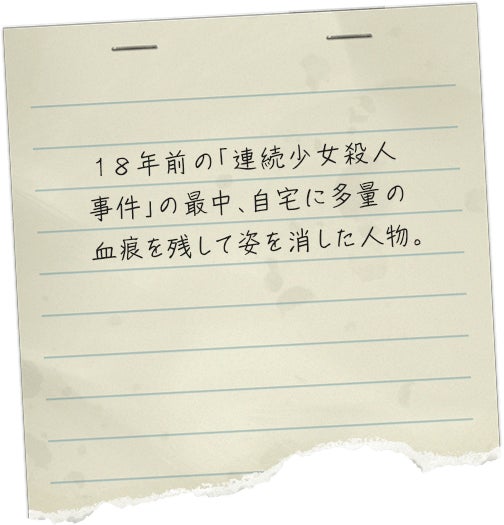 18年前の「連続少女殺人
事件」の最中、自宅に多量の
血痕を残して姿を消した人物。